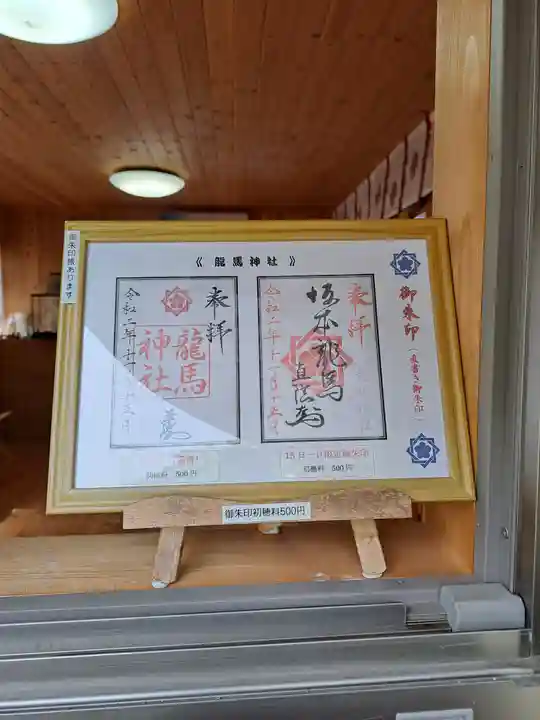 御朱印帳あります
《 龍馬神社 》
御朱印
(直書き御朱印)
奉拝
坂本龍馬
直陰
令和二年十一月十五日
奉拝
龍馬
神社
令和二年十一月十五日
初穂料 500円
15日一日限定御朱印
初穂料 500円
御朱印初穂料500円